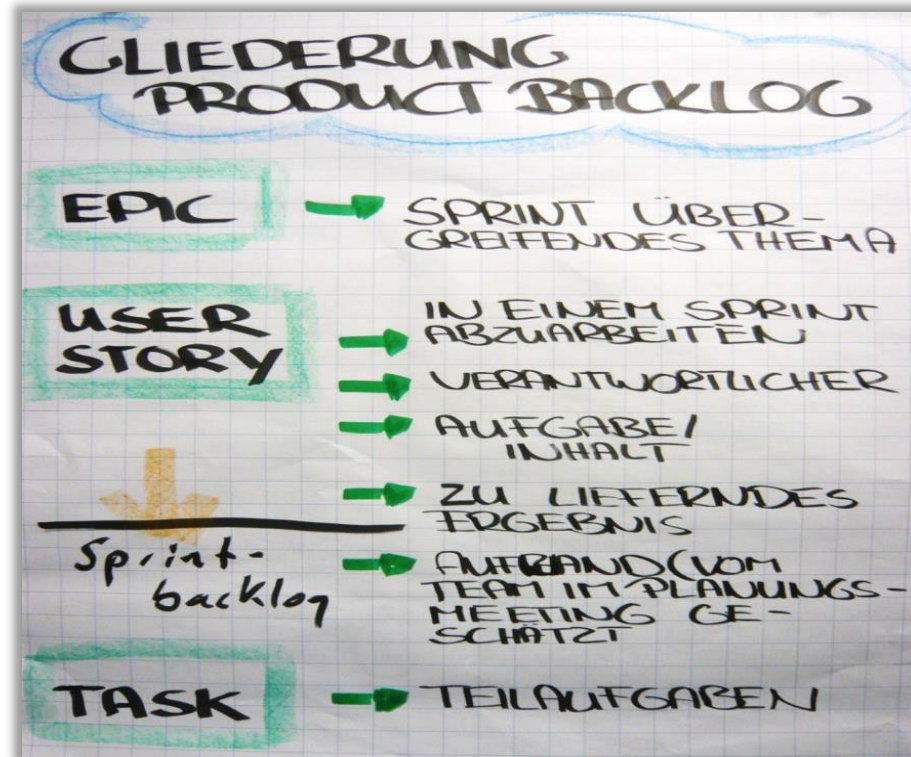 GLIEDERUNG
PRODUCT BACKLOG
EPIC
SPRINT ÜBER-
GREIFENDES THEMA
USER
STORY
IN EINEM SPRINT
ABZUARBEITEN
VERANTWORTLICHER
AUFGABE/
INHALT
ZU LIEFERNDES
ERGEBNIS
AUFWAND (VOM
TEAM IM PLANUNGS-
MEETING GE-
SCHÄTZT
Sprint-
backlog
TASK
TEILAUFGABEN